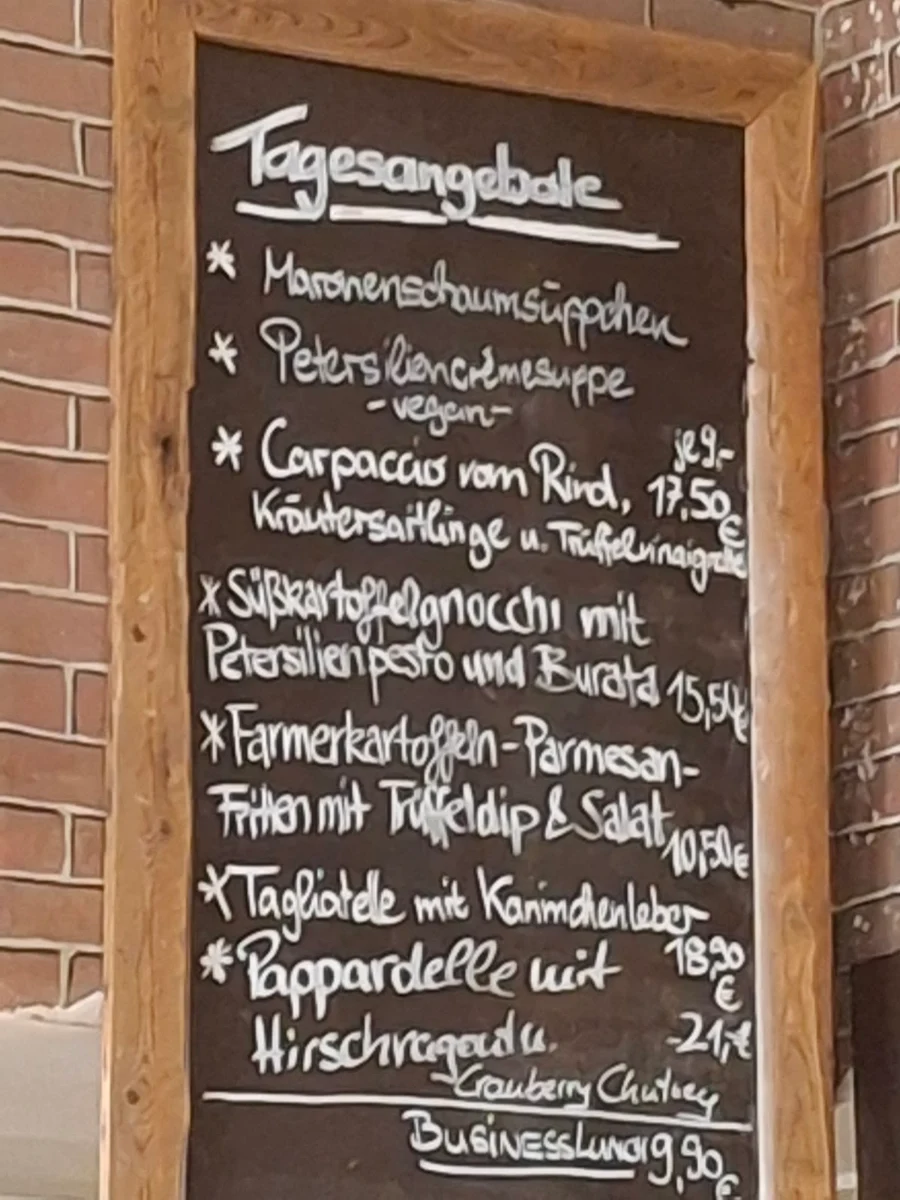 Tagesangebote
* Maronenschaumsüppchen
* Petersiliencrèmesuppe
- vegan -
je 9,-
* Carpaccio vom Rind, 17,50 €
Kräutersaitlinge u. Trüffelvinaigrette
* Süßkartoffelgnocchi mit
Petersilienpesto und Burata 15,50€
* Farmerkartoffeln - Parmesan-
Fritten mit Trüffeldip & Salat 10,50€
* Tagliatelle mit Kaninchenleber
18,90 €
* Pappardelle mit
Hirschragout u. -21,-€
Cranberry Chutney
BUSINESSLunch 9,90 €